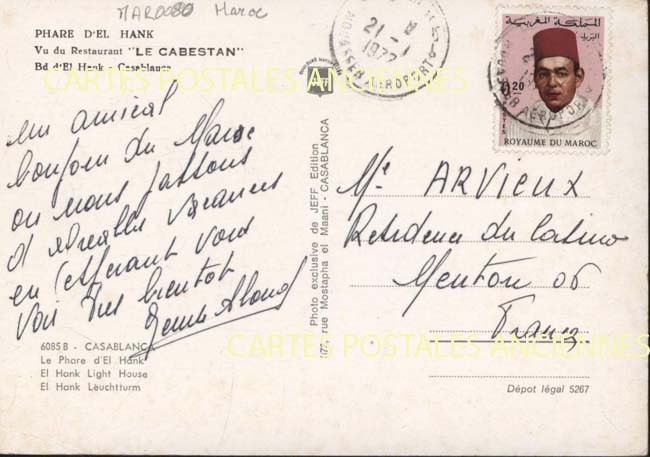 MAR0080 Maroc
PHARE D'EL HANK
Vu du Restaurant "LE CABESTAN"
Bd d'El Hank - Casablanca
CARTES POSTALES ANCIENNES
un amical
bonjour du Maroc
ou nous passons
d'agréables vacances
en espérant vous
voir très bientôt
6085 B - CASABLANCA
Le Phare d'El Hank
El Hank Light House
El Hank Leuchtturm
Photo exclusive de JEFF Edition
rue Mostapha el Maani - CASABLANCA
21 - 1
1977
AEROPORT
المملكة المغربية
البريد
0,20
POSTES
ROYAUME DU MAROC
Me ARVIEUX
Résidence du Casino
Menton 06
France
CARTES POSTALES ANCIENNES
Dépot légal 5267